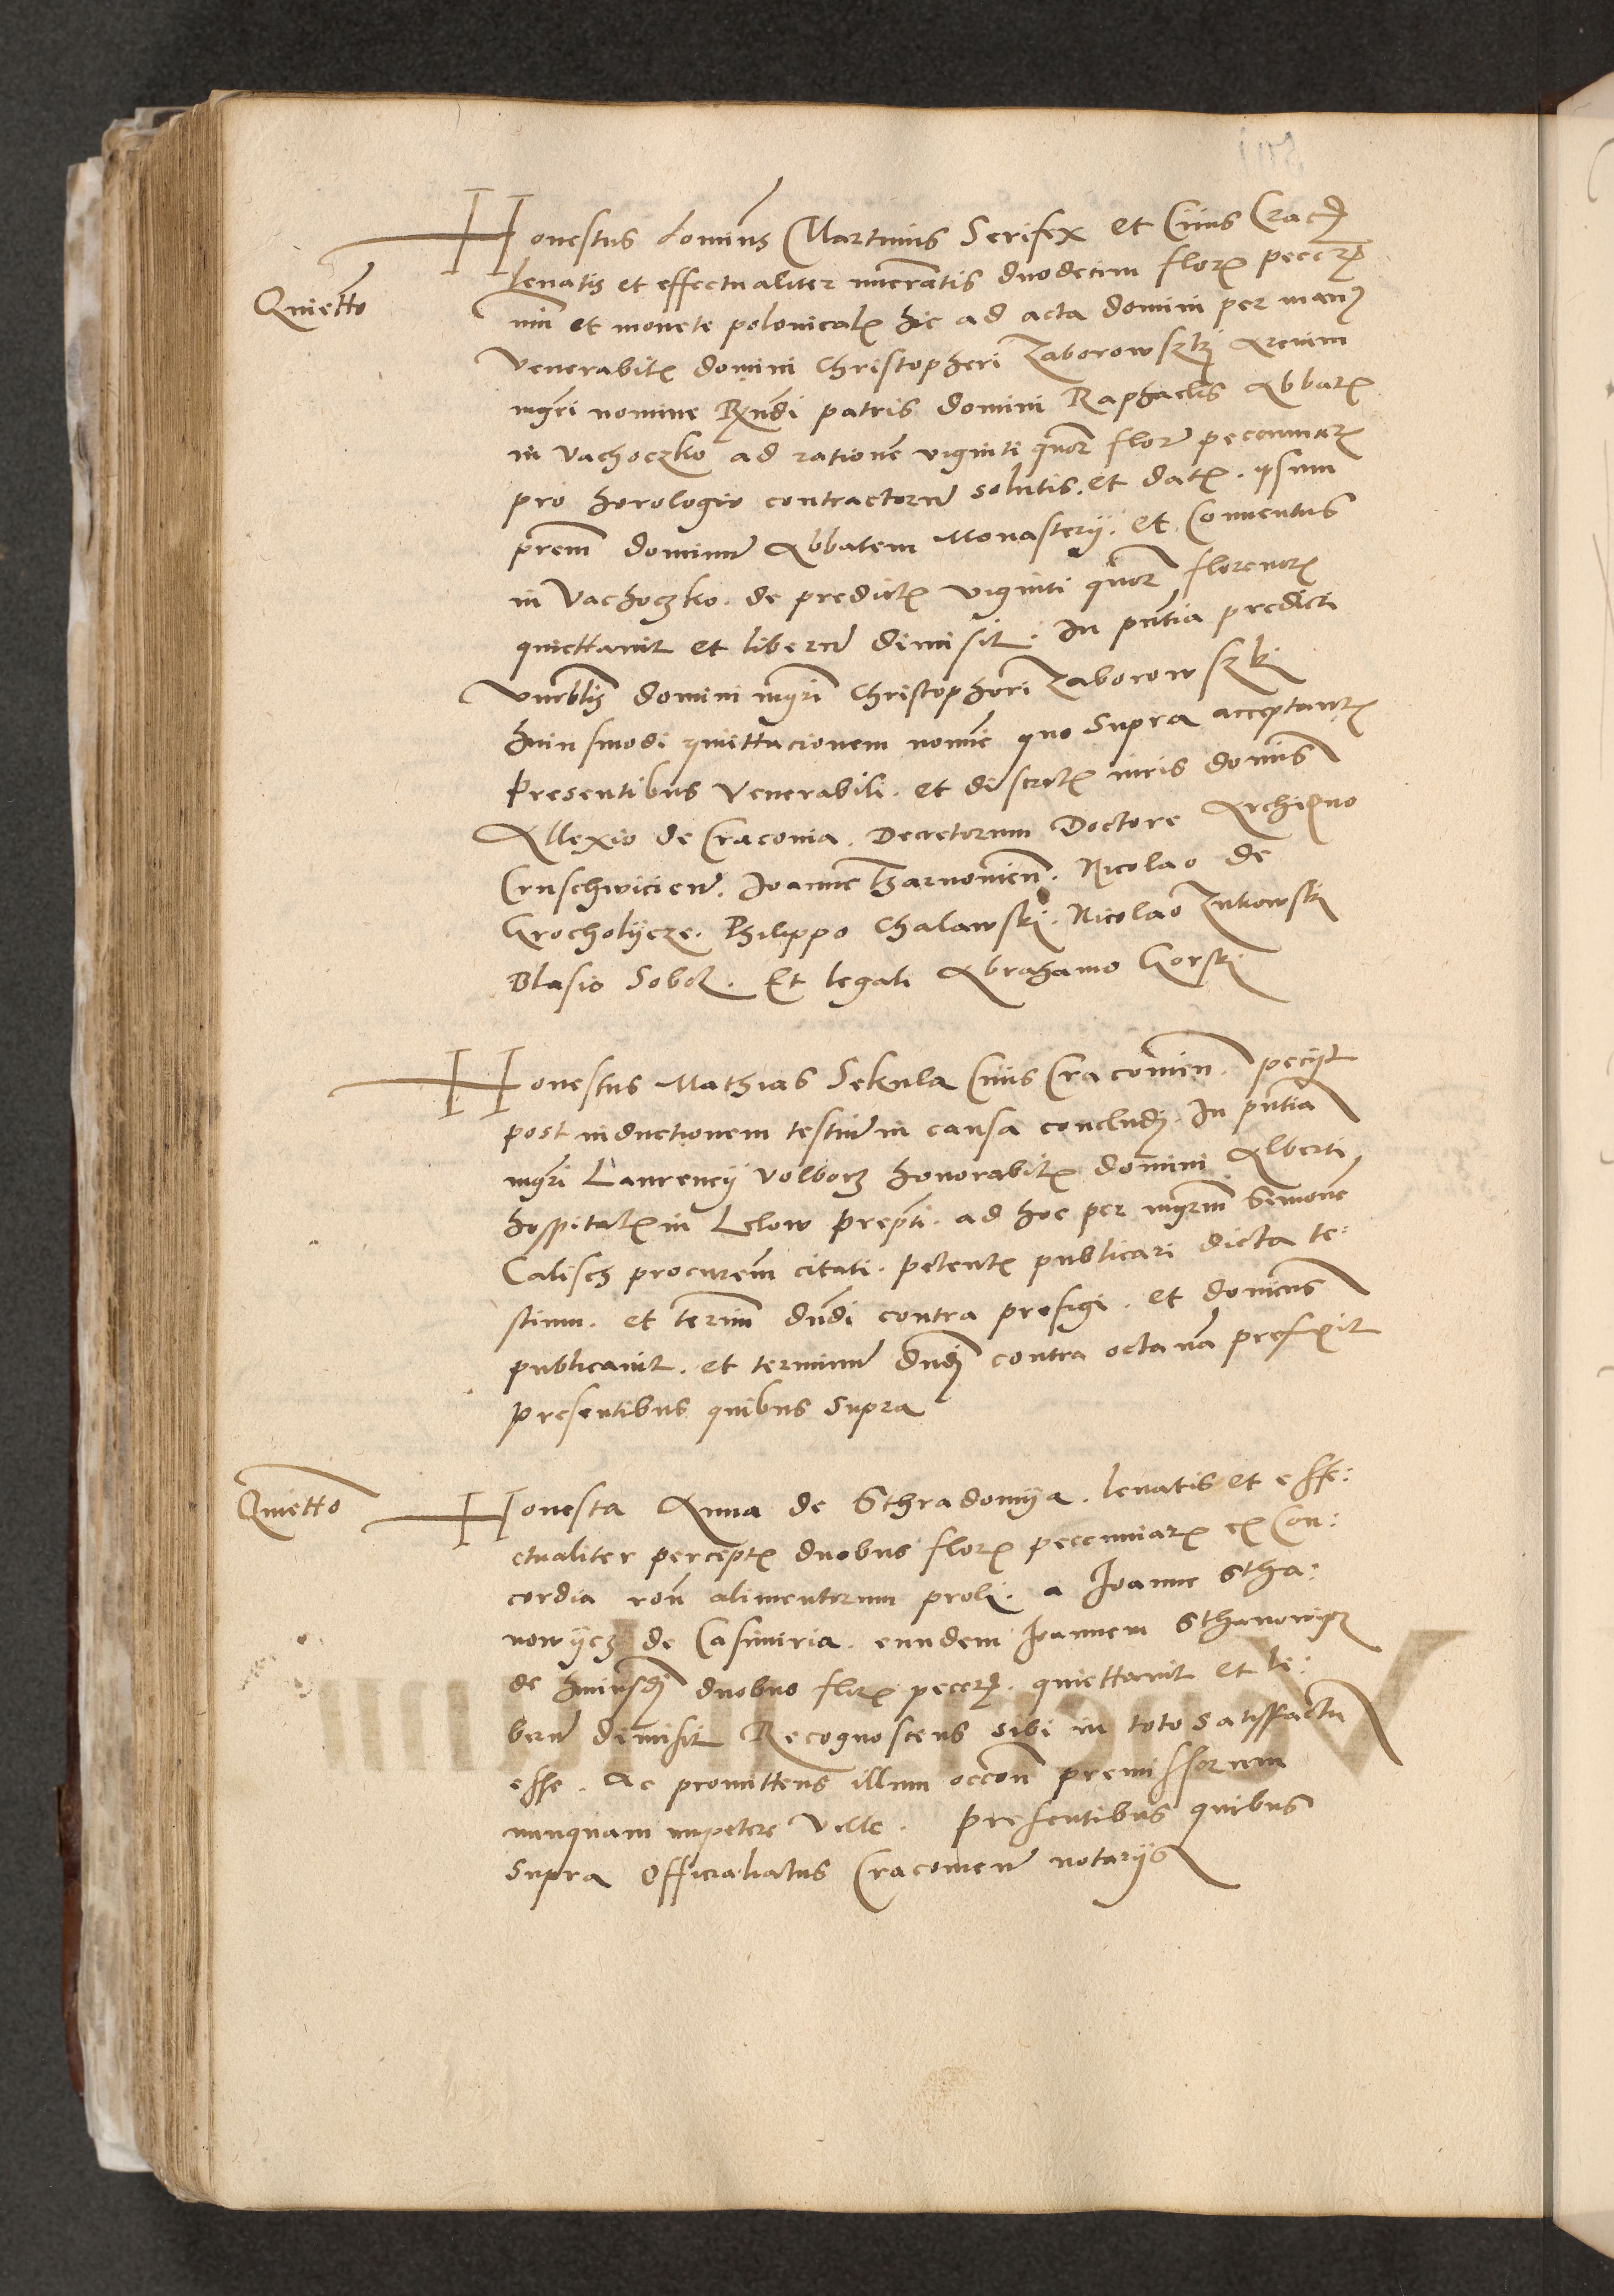 Honestus dominus Martinus Serifex et Civis Crac
Quietto
levatis et effectualiter numeratis duodecim flor pecc
num et monete polonicalis hic ad acta domini per manus
venerabilis domini Christopheri Zaborowski Artium
mgri nomine Rxndi patris domini Raphaelis Abbatis
in Vachoczko ad rationem viginti quor flor peccuniar
pro horologio contractorum solutis. et datis. ipsum
prem dominum Abbatem Monastery. et Conventus
in Vachoczko. de predictis viginti quor florenor
quiettavit et liberum dimisit. In pntia predicti
vnrblis domini mgri Christophori Zaborowski
huiusmodi quittacionem nomine quo supra acceptantis
Presentibus Venerabili. et discretis viris dominis
Allexio de Cracovia. Decretorum Doctore Archipno
Cruschwicien. Joanne Czarnovien. Nicolao de
Grocholycze. Philippo Chalawski. Nicolao Zukowski
Blasio Sobol. Et legali Abrahamo Gorski
Honestus Mathias Sekula Civis Cracovien. pecijt
post inductionem testium in causa concludi. In pntia
mgri Laurencij Volborz honorabilis domini Alberti
hospitalis in Lelow prepti. ad hoc per mgrm Simone
Calisch procurem citati. petentis publicari dicta te:
stium. et termin dndi contra prefigi. et dominus
publicavit. et terminum dndi contra octavam prefixit
presentibus quibus supra
Quietto
Honesta Anna de Sthradomya. levatis et effe:
ctualiter perceptis duobus flor peccuniar ex Con:
cordia ron alimentorum prolis. a Joanne Stha:
nowijcz de Casimiria. eundem Joannem Sthanowicz
de huiusmodi duobus flor peccr. quiettavit et li:
berum dimisit Recognoscens sibi in toto satisfactum
esse. Ac promittens illum occon premissorum
nunquam impetere velle. presentibus quibus
supra Officialatus Cracovien notarijs